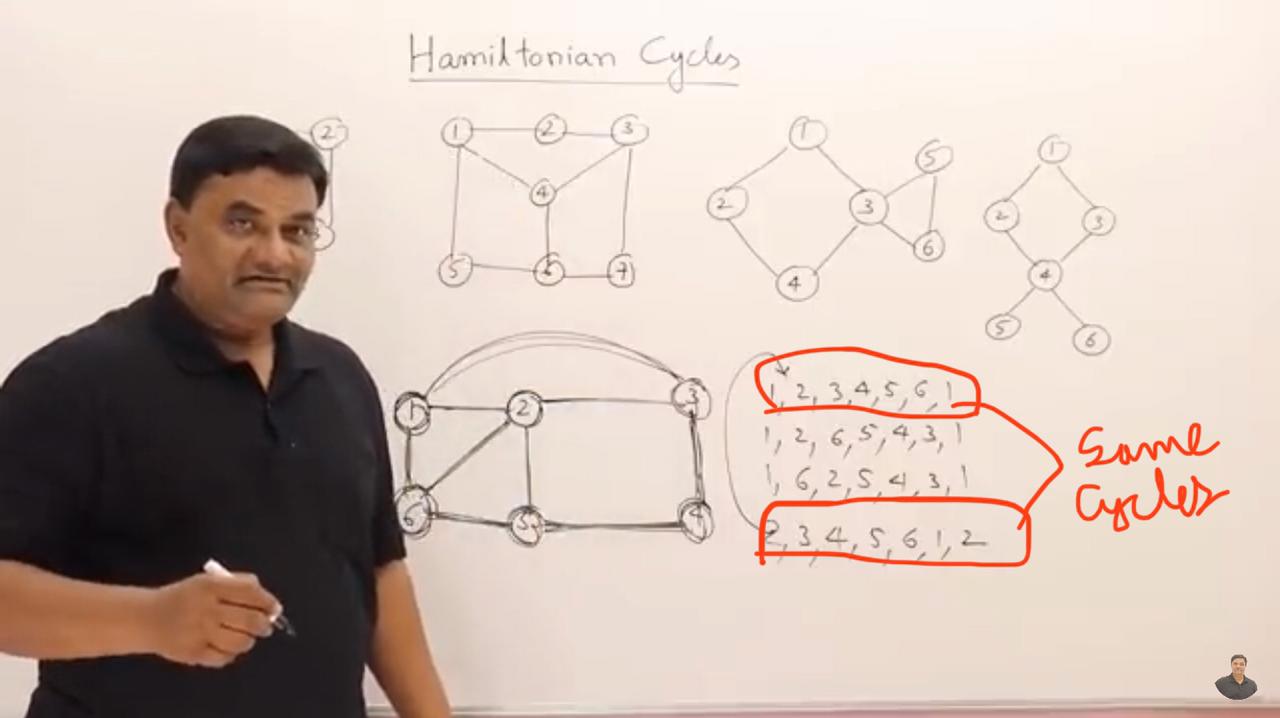 Hamiltonian Cycles
2
1 2 3
4
5 6 7
1
5
2 3
6
4
1
2 3
4
5 6
1 2 3
6 5 4
1, 2, 3, 4, 5, 6, 1
1, 2, 6, 5, 4, 3, 1
1, 6, 2, 5, 4, 3, 1
2, 3, 4, 5, 6, 1, 2
Same
Cycles